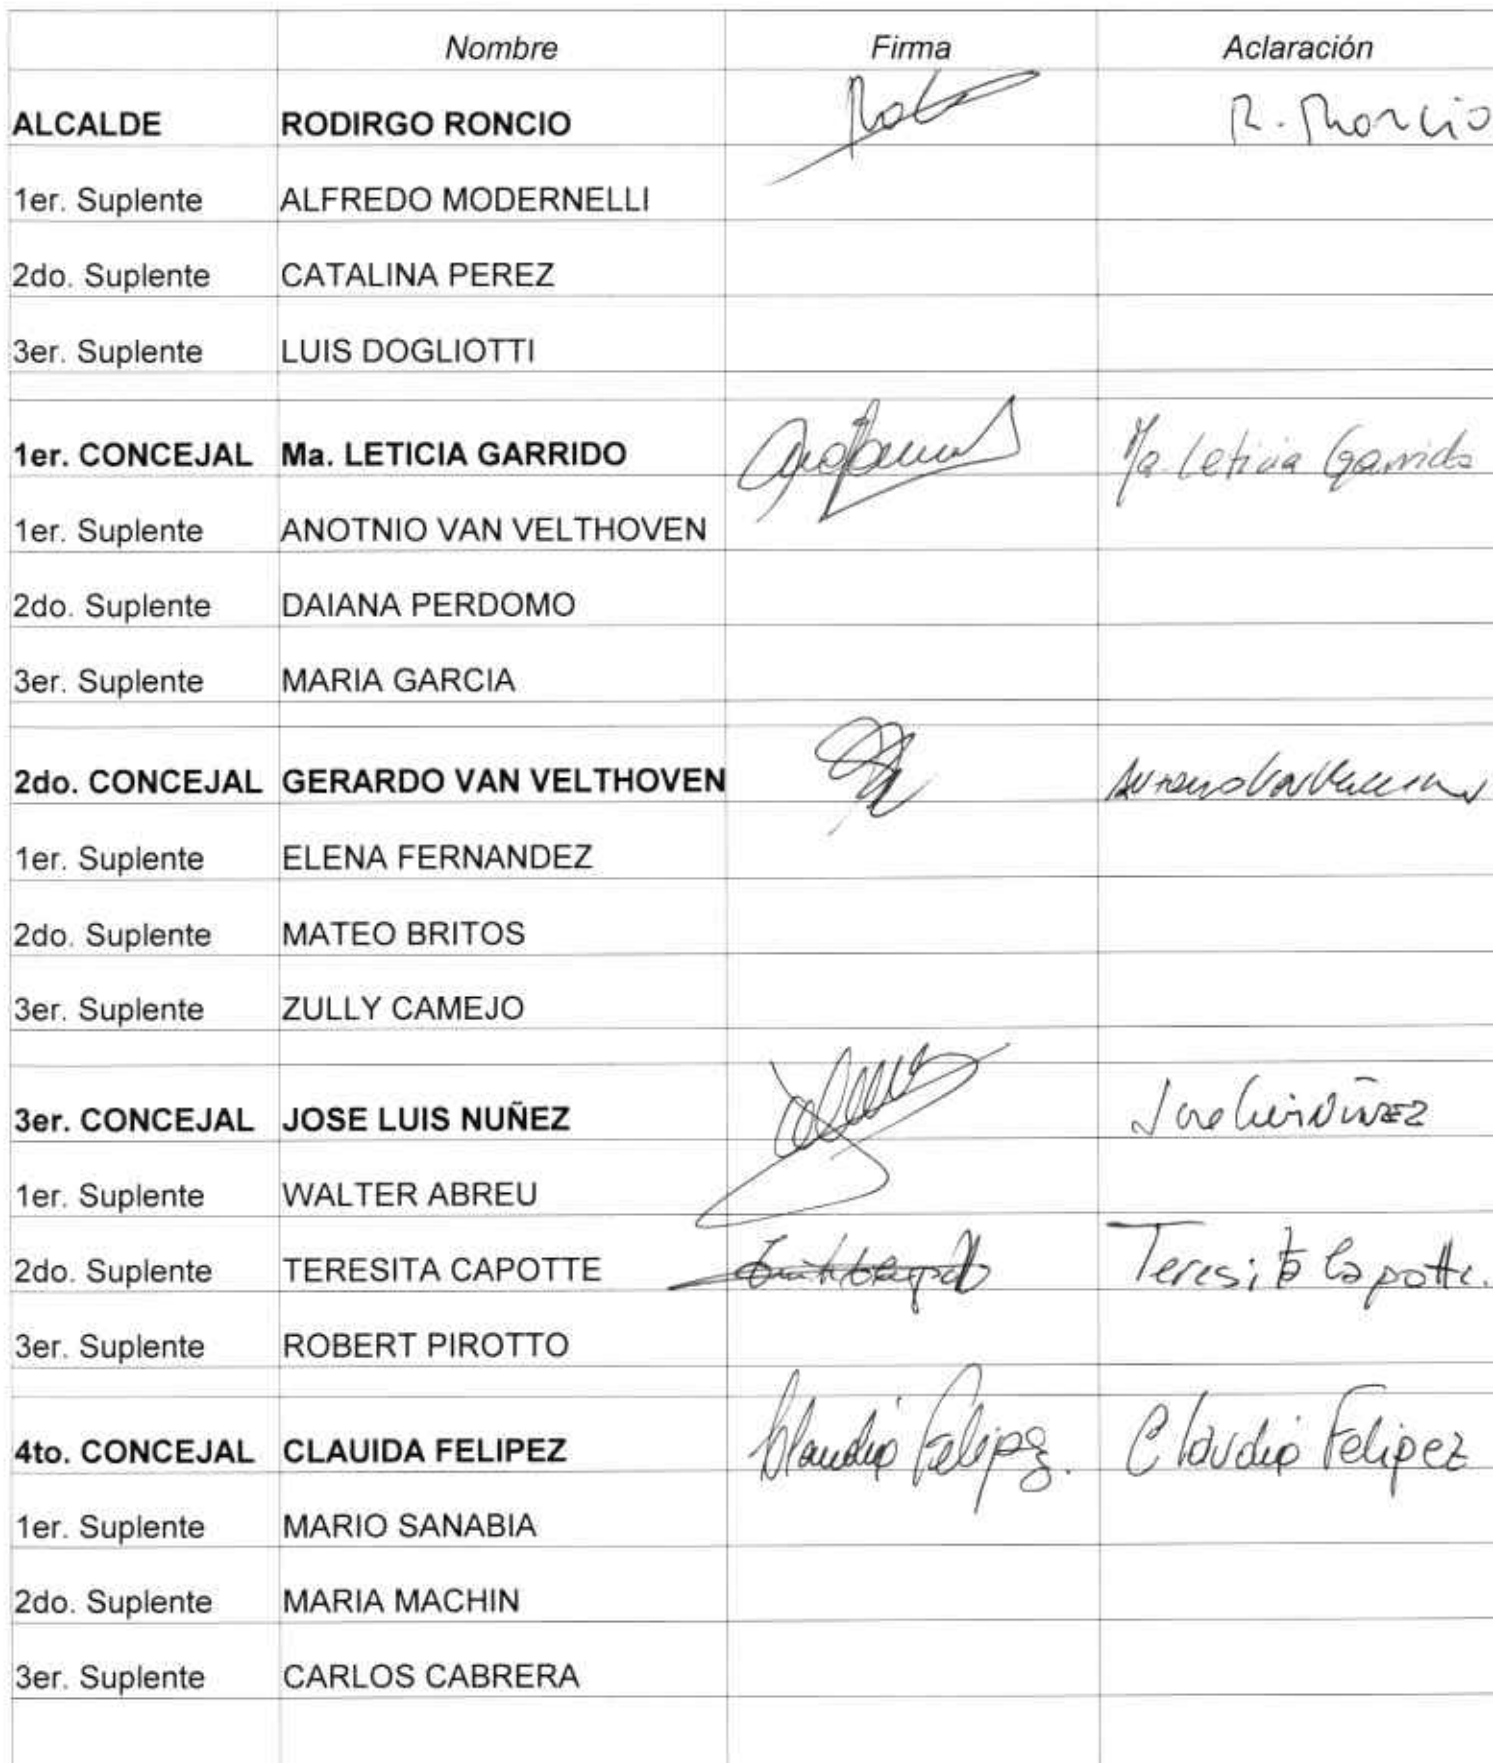 Nombre Firma Aclaración
ALCALDE RODIRGO RONCIO R. Roncio
1er. Suplente ALFREDO MODERNELLI
2do. Suplente CATALINA PEREZ
3er. Suplente LUIS DOGLIOTTI
1er. CONCEJAL Ma. LETICIA GARRIDO Ma. Leticia Garrido
1er. Suplente ANOTNIO VAN VELTHOVEN
2do. Suplente DAIANA PERDOMO
3er. Suplente MARIA GARCIA
2do. CONCEJAL GERARDO VAN VELTHOVEN
1er. Suplente ELENA FERNANDEZ
2do. Suplente MATEO BRITOS
3er. Suplente ZULLY CAMEJO
3er. CONCEJAL JOSE LUIS NUÑEZ Jose Luis Nuñez
1er. Suplente WALTER ABREU
2do. Suplente TERESITA CAPOTTE Teresita Capotte.
3er. Suplente ROBERT PIROTTO
4to. CONCEJAL CLAUIDA FELIPEZ Claudia Felipez. Claudia Felipez
1er. Suplente MARIO SANABIA
2do. Suplente MARIA MACHIN
3er. Suplente CARLOS CABRERA